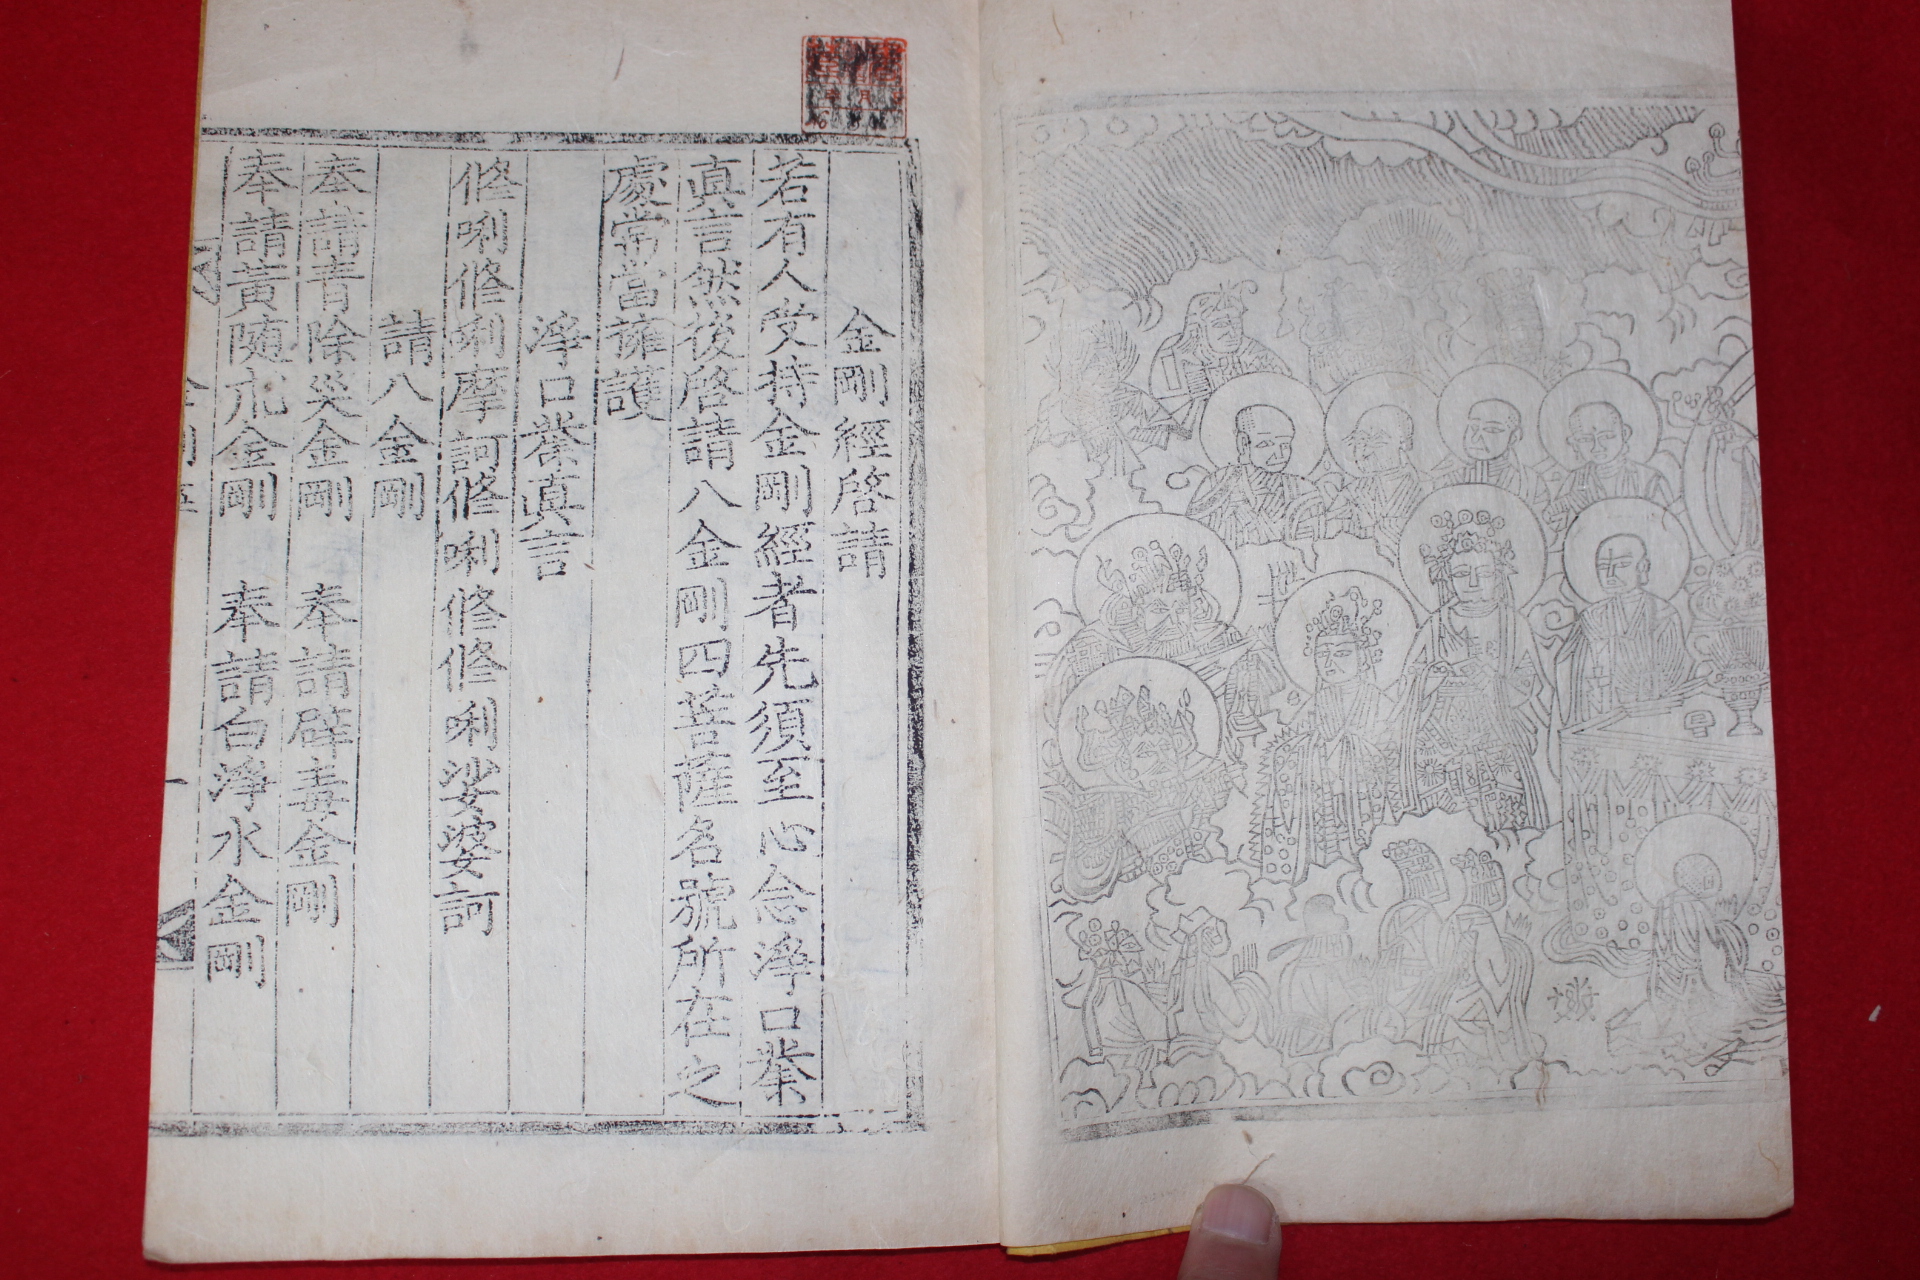 金剛經啓請
若有人受持金剛經者先須至心念淨口業
眞言然後啓請八金剛四菩薩名號所在之
處常當擁護
淨口業眞言
修唎修唎摩訶修唎修修唎娑婆訶
請八金剛
奉請青除災金剛 奉請辟毒金剛
奉請黃随求金剛 奉請白淨水金剛